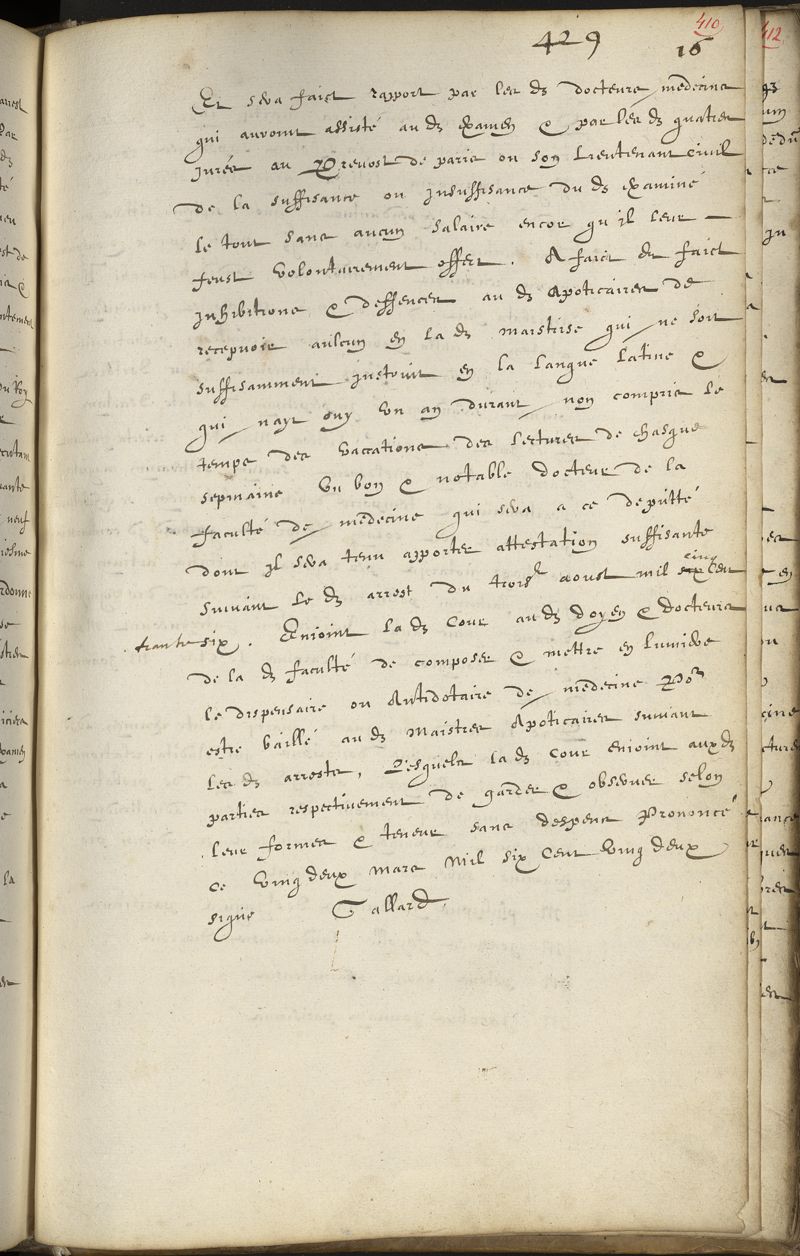 410
429
16
Et sera faict rapport par les ds docteurs medecins
qui auront assisté au d examen & par les ds quatres
jurés au Prevost de paris ou son Lieutenant Civil
de la suffisance ou insuffisance du d examiné
le tout sans aucun salaire encor qu il leur
feust volontairement offert. A faict et faict
inhibitions & deffences au ds Apoticaires de
recepvoir aulcun en la d maistrise qui ne soit
suffisamment instruit en la langue latine &
qui nayt ouy un an durant non compris le
temps des vaccations des lectures de chasque
sepmaine un bon & notable docteur de la
faculté de medecine qui sera a ce deputté
dont il sera tenu apporter attestation suffisante
suivant le d arrest du trois.e aoust mil cinq cent
trante six. Enjoint la d Cour au ds doyen & docteurs
de la d faculté de composer & mettre en lumiere
le dispensaire ou Antidotaire de medecine Po.r
estre baillé au ds Maistres Apoticaires suivant
les ds arrests, Lesquels la d Cour enjoint aux ds
parties respectivement de garder & observer selon
leur formes & teneur sans despens Prononcé
ce vingt deux mars Mil six Cent vingt deux
signé Gallard